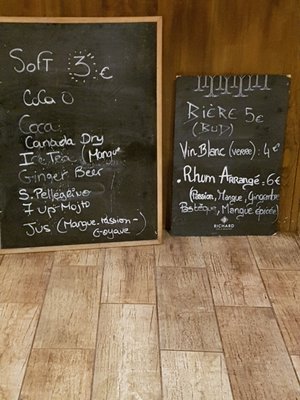 Soft 3 €
CoCa O
Coca
Canada Dry
Ice Tea (Mangue
Ginger Beer
S. Pellegrino
7 up-Mojto
Jus (Mangue, Passion-
Goyave
BIÈRE 5€
(BUD)
Vin Blanc (verre): 4€
. Rhum Arrangé - 6€
(Passion, Mangue, Gingembre
Pastèque, Mangue épicée)
RICHARD